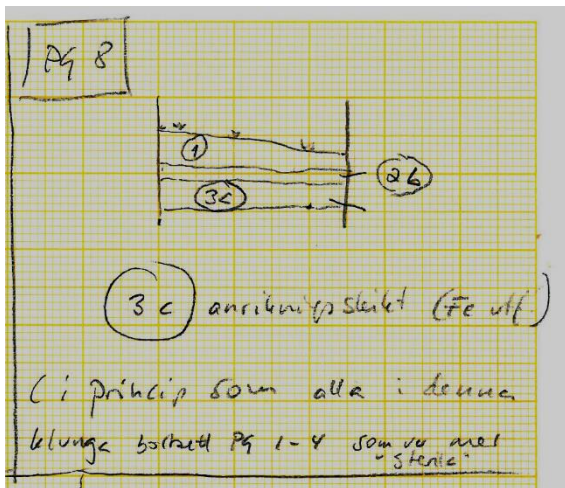 PG 8
1
2b
3c
3c anrikningsskikt (Fe utf.)
(i princip som alla i denna
klunga bortsett PG 1-4 som var mer
"sterila"